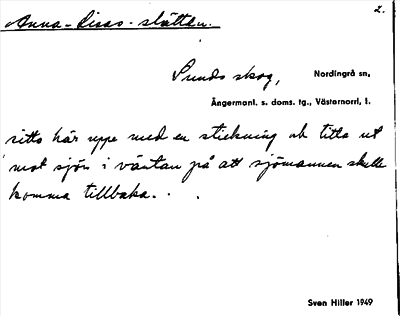 Anna-Lisas-slätten.
2.
Sunds skog, Nordingrå sn,
Ångermanl. s. doms. tg., Västernorrl. l.
sitta här uppe med en stickning och titta ut
mot sjön i väntan på att sjömannen skulle
komma tillbaka. . .
Sven Hiller 1949